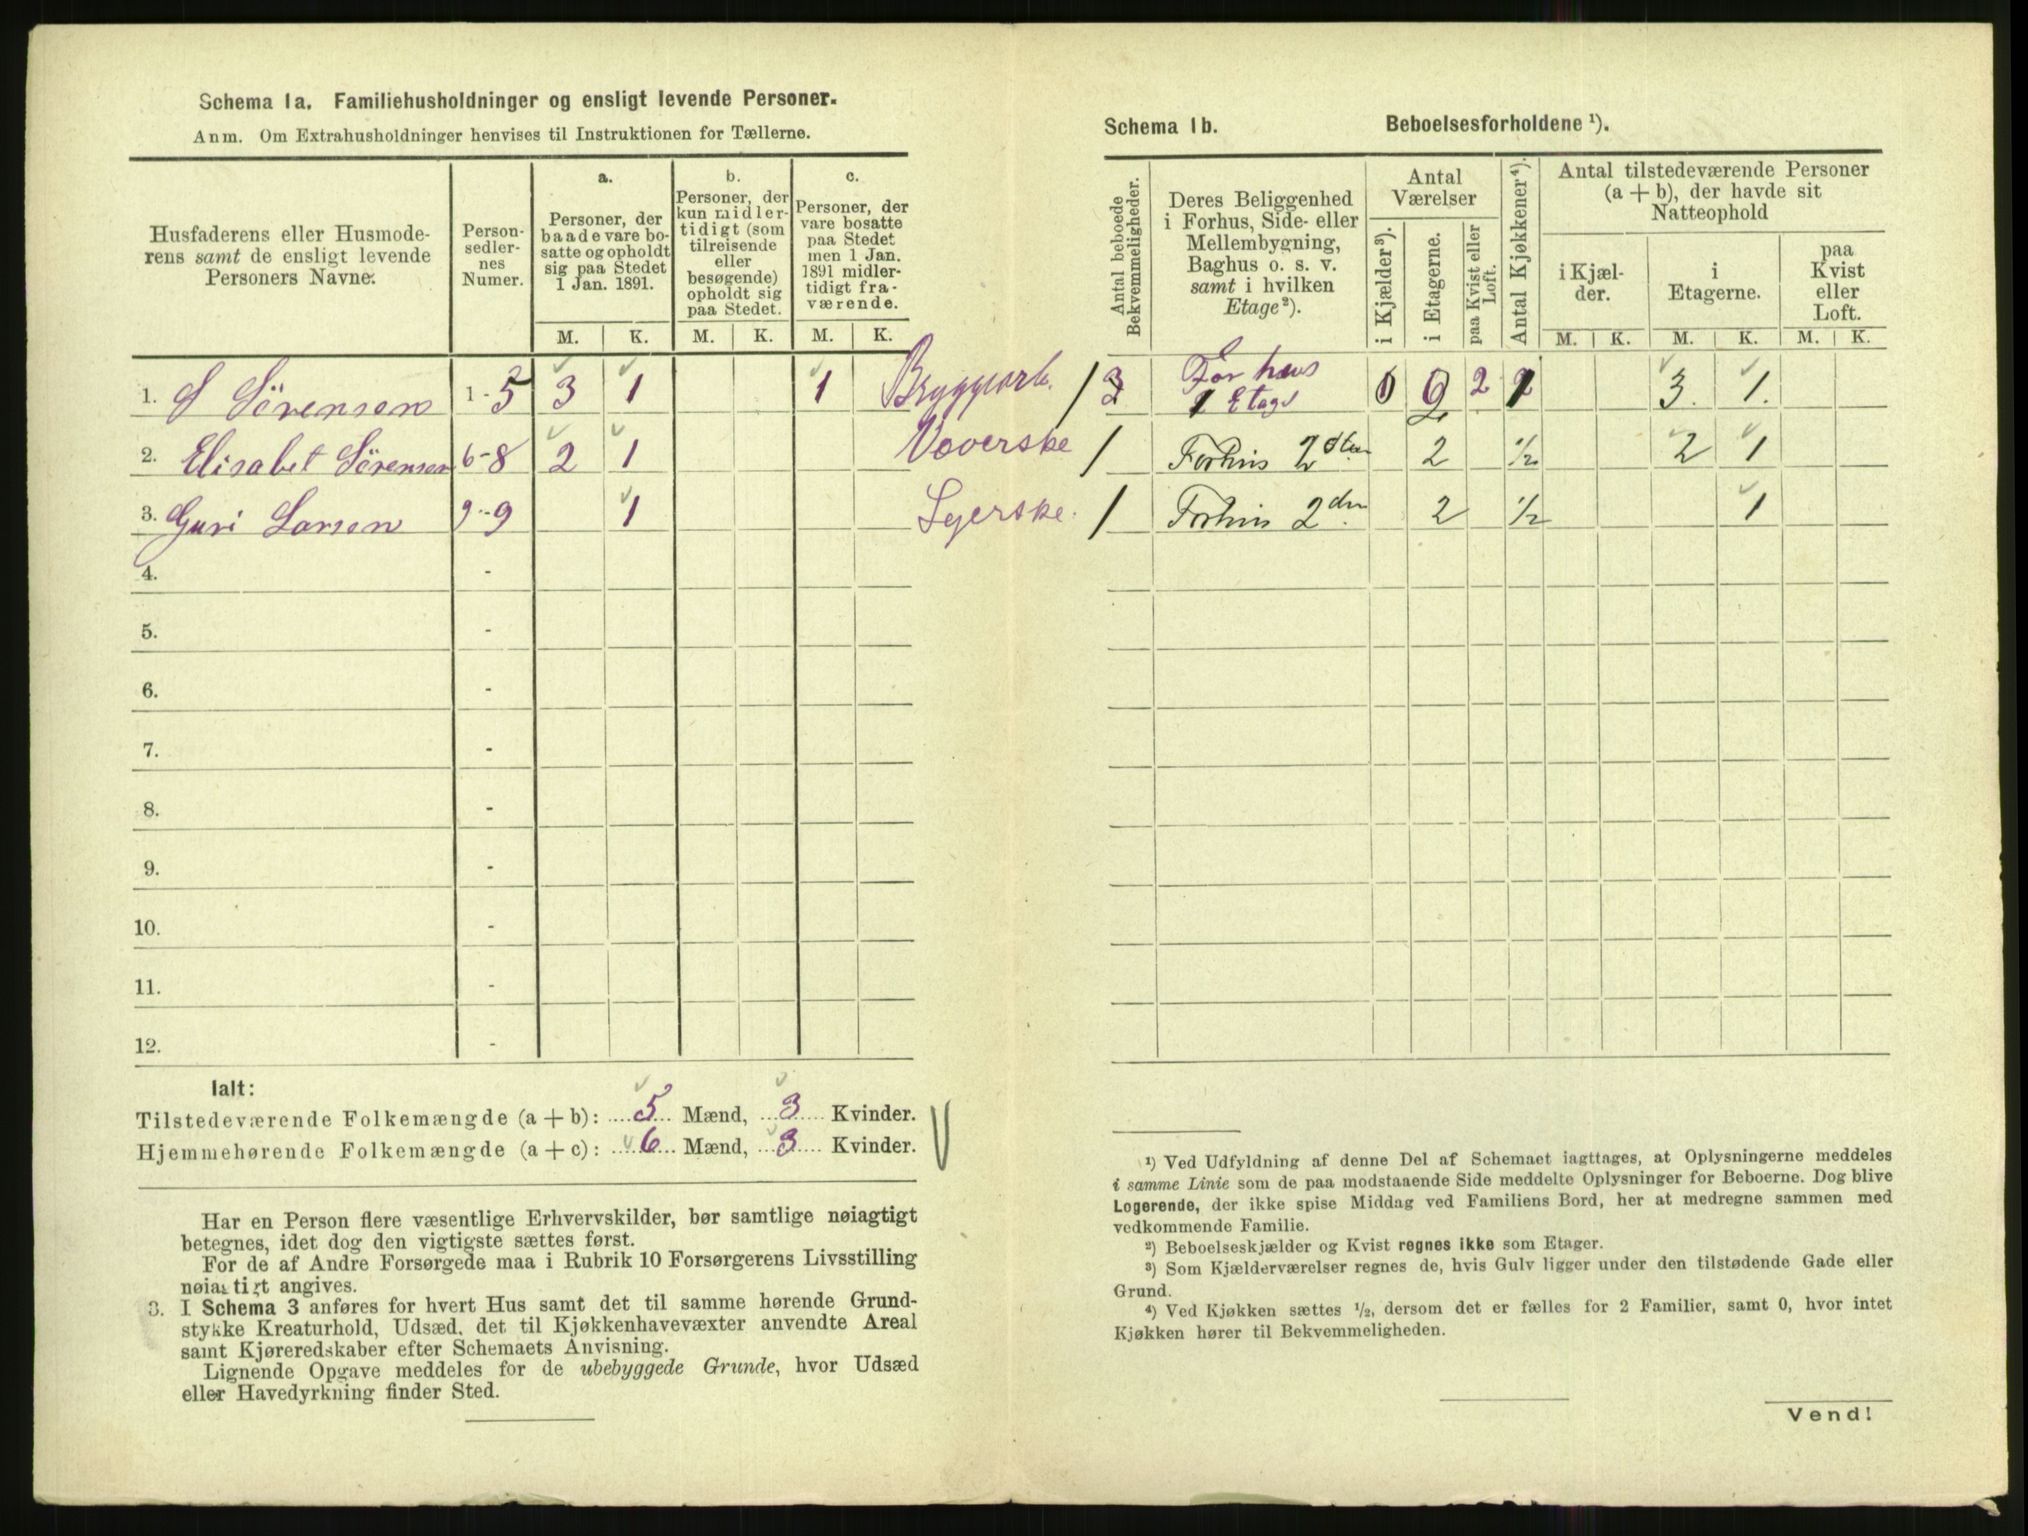 Schema 1a. Familiehusholdninger og ensligt levende Personer.
Anm. Om Extrahusholdninger henvises til Instruktionen for Tællerne.
Husfaderens eller Husmode-
rens samt de ensligt levende
Personers Navne.
Person-
sedler-
nes
Numer.
a.
Personer, der
baade vare bo-
satte og opholdt
sig paa Stedet
1 Jan. 1891.
b.
Personer, der
kun midler-
tidigt (som
tilreisende
eller
besøgende)
opholdt sig
paa Stedet.
c.
Personer, der
vare bosatte
paa Stedet
men 1 Jan.
1891 midler-
tidigt fra-
værende.
M. K. M. K. M. K.
1. S Sörensen 1-5 3 1 1 Bryggearb.
2. Elisabet Sörensen 6-8 2 1 Væverske
3. Guri Larsen 9-9 1 Syerske.
4. -
5. -
6. -
7. -
8. -
9. -
10. -
11. -
12. -
Ialt:
Tilstedeværende Folkemængde (a + b): 5 Mænd, 3 Kvinder.
Hjemmehørende Folkemængde (a + c): 6 Mænd, 3 Kvinder.
Har en Person flere væsentlige Erhvervskilder, bør samtlige nøiagtigt
betegnes, idet dog den vigtigste sættes først.
For de af Andre Forsørgede maa i Rubrik 10 Forsørgerens Livsstilling
nøiagtigt angives.
3. I Schema 3 anføres for hvert Hus samt det til samme hørende Grund-
stykke Kreaturhold, Udsæd, det til Kjøkkenhavevæxter anvendte Areal
samt Kjøreredskaber efter Schemaets Anvisning.
Lignende Opgave meddeles for de ubebyggede Grunde, hvor Udsæd
eller Havedyrkning finder Sted.
Schema 1b. Beboelsesforholdene ¹).
Antal beboede
Bekvemmeligheder.
Deres Beliggenhed
i Forhus, Side- eller
Mellembygning,
Baghus o. s. v.
samt i hvilken
Etage²).
Antal
Værelser
i Kjælder³).
i Etagerne.
paa Kvist eller
Loft.
Antal Kjøkkener⁴).
Antal tilstedeværende Personer
(a + b), der havde sit
Natteophold
i Kjæl-
der.
i
Etagerne.
paa
Kvist
eller
Loft.
M. K. M. K. M. K.
Forhus
1 Etage 0 2 3. 1.
1 Forhus 2den 2 ½ 2 1
1 Forhus 2den 2 ½ 1
¹) Ved Udfyldning af denne Del af Schemaet iagttages, at Oplysningerne meddeles
i samme Linie som de paa modstaaende Side meddelte Oplysninger for Beboerne. Dog blive
Logerende, der ikke spise Middag ved Familiens Bord, her at medregne sammen med
vedkommende Familie.
²) Beboelseskjælder og Kvist regnes ikke som Etager.
³) Som Kjælderværelser regnes de, hvis Gulv ligger under den tilstødende Gade eller
Grund.
⁴) Ved Kjøkken sættes ½, dersom det er fælles for 2 Familier, samt 0, hvor intet
Kjøkken hører til Bekvemmeligheden.
Vend!